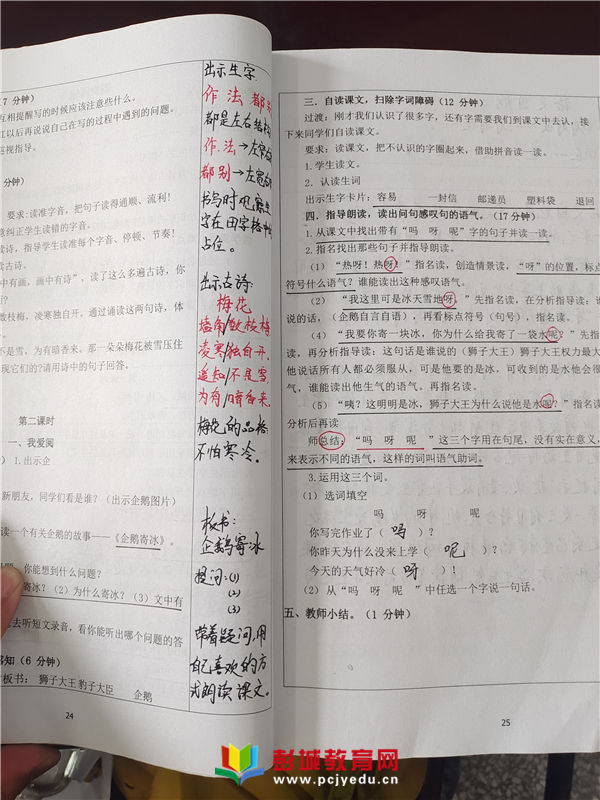 7 分钟）
互相提醒写的时候应该注意些什么.
江以后再说说自己在写的过程中遇到的问题。
巡视指导。
分钟）
要求：读准字音，把句子读得通顺、流利！
意纠正学生读错的字音。
读诗，指导学生读准每个字音、停顿、节奏！
读古诗。
中有画，画中有诗”，读了这么多遍古诗，你
数枝梅，凌寒独自开。通过诵读这两句诗，体
不是雪，为有暗香来。那一朵朵梅花被雪压住
现它们的？请用诗中的句子回答。
第二课时
一、我爱阅
）1.出示企
新朋友，同学们看是谁？（出示企鹅图片）
读一个有关企鹅的故事——《企鹅寄冰》。
题，你能想到什么问题？
寄冰？（2）为什么寄冰？（3）文中有
去听短文录音，看你能听出哪个问题的答
感知（6 分钟）
板书：  狮子大王豹子大臣    企鹅
24
出示生字.
作 法 都 别
都是左右结构
作.法→左窄右
都 别→左宽右
书写时观察生
字在田字格中的
占位。
出示古诗:
梅花
墙角/数枝梅
凌寒/独自开.
遥知/不是雪.
为有/暗香来.
梅花的品格:
不怕寒冷。
板书:
企鹅寄冰
提问:(1)
(2)
(3)
带着疑问,用
自己喜欢的方
式朗读课文.
三、自读课文，扫除字词障碍（12 分钟）
过渡：刚才我们认识了很多字，还有字需要我们到课文中去认，接
下来同学们自读课文。
要求：读课文，把不认识的字圈起来，借助拼音读一读。
1.学生读文。
2. 认读生词
出示生字卡片：容易    一封信    邮递员    塑料袋    退回
四、指导朗读，读出问句感叹句的语气。（17 分钟）
1.从课文中找出带有“吗  呀  呢”字的句子并读一读。
2.指名找出那些句子并指导朗读。
（1）“热呀！热呀！”指名读，创造情景读，“呀”的位置，标点
符号什么语气？谁能读出这种感叹语气。
（2）“我这里可是冰天雪地呀。”先指名读，在分析指导读：谁
说的话，（企鹅自言自语），再看标点符号（句号），指名读。
（4）“我要你寄一块冰，你为什么给我寄了一袋水呢？”先指名
读，再分析指导读，这句话是谁说的（狮子大王）狮子大王权力最大
他说话所有人都必须服从，可是他要的是冰，可收到的是水他会很
气，谁能读出他生气的语气，再指名读。
（5）“咦？这明明是冰，狮子大王为什么说他是水呢？”指名读
分析后再读
师总结：“吗  呀  呢  ”这三个字用在句尾，没有实在意义，
来表示不同的语气，这样的词叫语气助词。
3.运用这三个词。
（1） 选词填空
吗    呀    呢
你写完作业了（ 吗 ）？
你昨天为什么没来上学（ 呢 ）？
今天的天气好冷（ 呀 ）！
（2） 从“吗  呀  呢  ”中任选一个字说一句话。
五、教师小结。（1 分钟）
25
彭城教育网
www.pcjyedu.cn